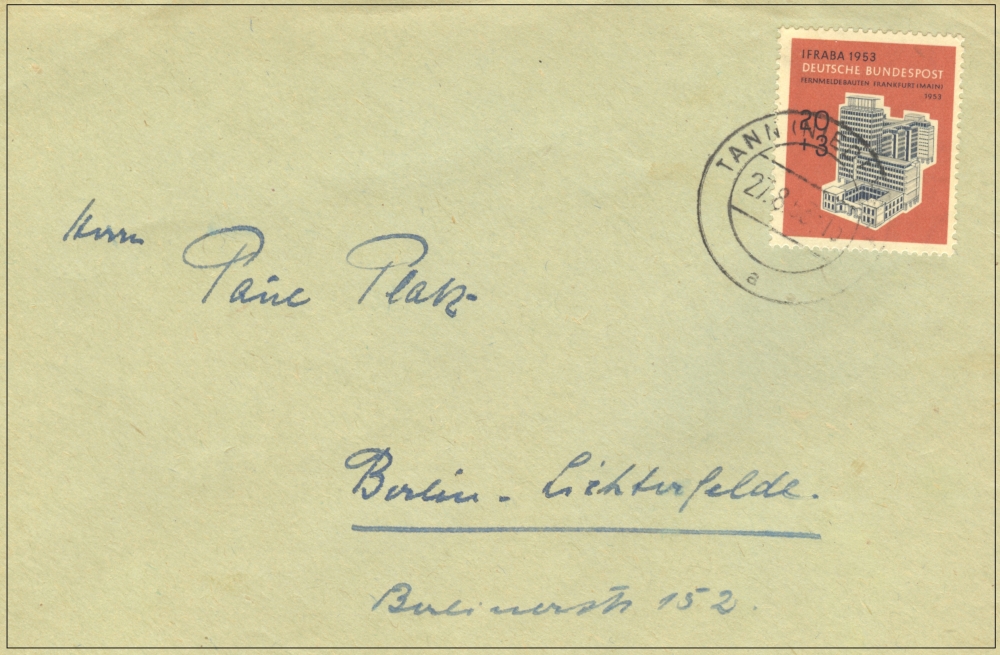 IFRABA 1953
DEUTSCHE BUNDESPOST
FERNMELDEBAUTEN FRANKFURT (MAIN)
1953
20
+3
TANN
27.8
a
Herrn
Platz
Berlin - Lichterfelde.
Berlinerstr 152.